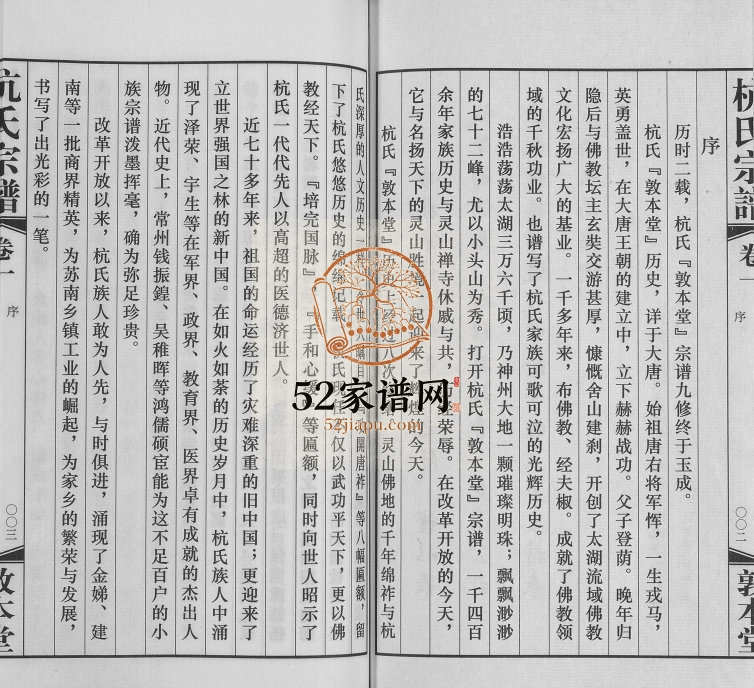 杭氏宗譜
卷一
序
〇〇二
敦本堂
序
历时二载，杭氏『敦本堂』宗谱九修终于玉成。
杭氏『敦本堂』历史，详于大唐。始祖唐右将军恽，一生戎马，
英勇盖世，在大唐王朝的建立中，立下赫赫战功。父子登荫。晚年归
隐后与佛教坛主玄奘交游甚厚，慷慨舍山建刹，开创了太湖流域佛教
文化宏扬广大的基业。一千多年来，布佛教、经夫椒。成就了佛教领
域的千秋功业。也谱写了杭氏家族可歌可泣的光辉历史。
浩浩荡荡太湖三万六千顷，乃神州大地一颗璀璨明珠；飘飘渺渺
的七十二峰，尤以小头山为秀。打开杭氏『敦本堂』宗谱，一千四百
余年家族历史与灵山禅寺休戚与共，历经荣辱。在改革开放的今天，
它与名扬天下的灵山胜境一起迎来了辉煌的今天。
杭氏『敦本堂』历史上经过八次 灵山佛地的千年绵祚与杭
氏深厚的人文历史一 開唐祚』等八幅匾额，留
下了杭氏悠悠历史的绵绵记载。 仅以武功平天下，更以佛
教经天下。『培完国脉』『手和心 』等匾额，同时向世人昭示了
杭氏一代代先人以高超的医德济世人。
近七十多年来，祖国的命运经历了灾难深重的旧中国；更迎来了
立世界强国之林的新中国。在如火如荼的历史岁月中，杭氏族人中涌
现了泽荣、宇生等在军界、政界、教育界、医界卓有成就的杰出人
物。近代史上，常州钱振鍠、吴稚晖等鸿儒硕宦能为这不足百户的小
族宗谱泼墨挥毫，确为弥足珍贵。
改革开放以来，杭氏族人敢为人先，与时俱进，涌现了金娣、建
南等一批商界精英，为苏南乡镇工业的崛起，为家乡的繁荣与发展，
书写了出光彩的一笔。
杭氏宗譜
卷一
序
〇〇三
敦本堂
52家谱网
52jiapu.com